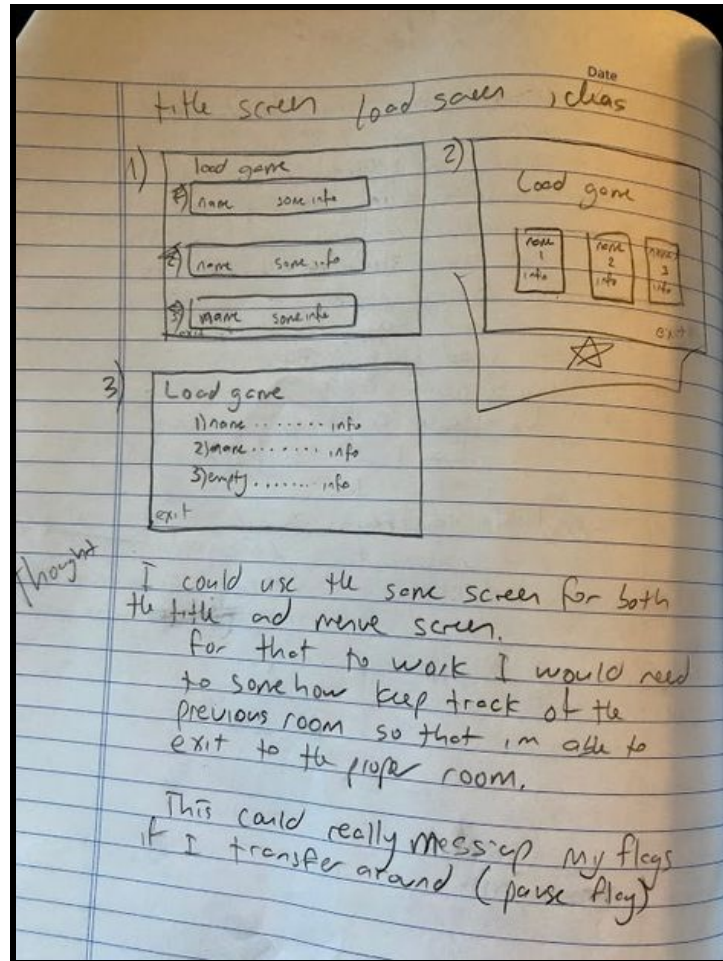 Date
title screen load screen ideas
1)
load game
1) name some info
2) name some info
3) name some info
exit
2)
Load game
name 1 info
name 2 info
name 3 info
exit
3)
Load game
1) name ........ info
2) name ....... info
3) empty ....... info
exit
Thought
I could use the same screen for both
the title and menue screen.
for that to work I would need
to somehow keep track of the
previous room so that im able to
exit to the proper room.
This could really mess up my flags
if I transfer around (pause flag)